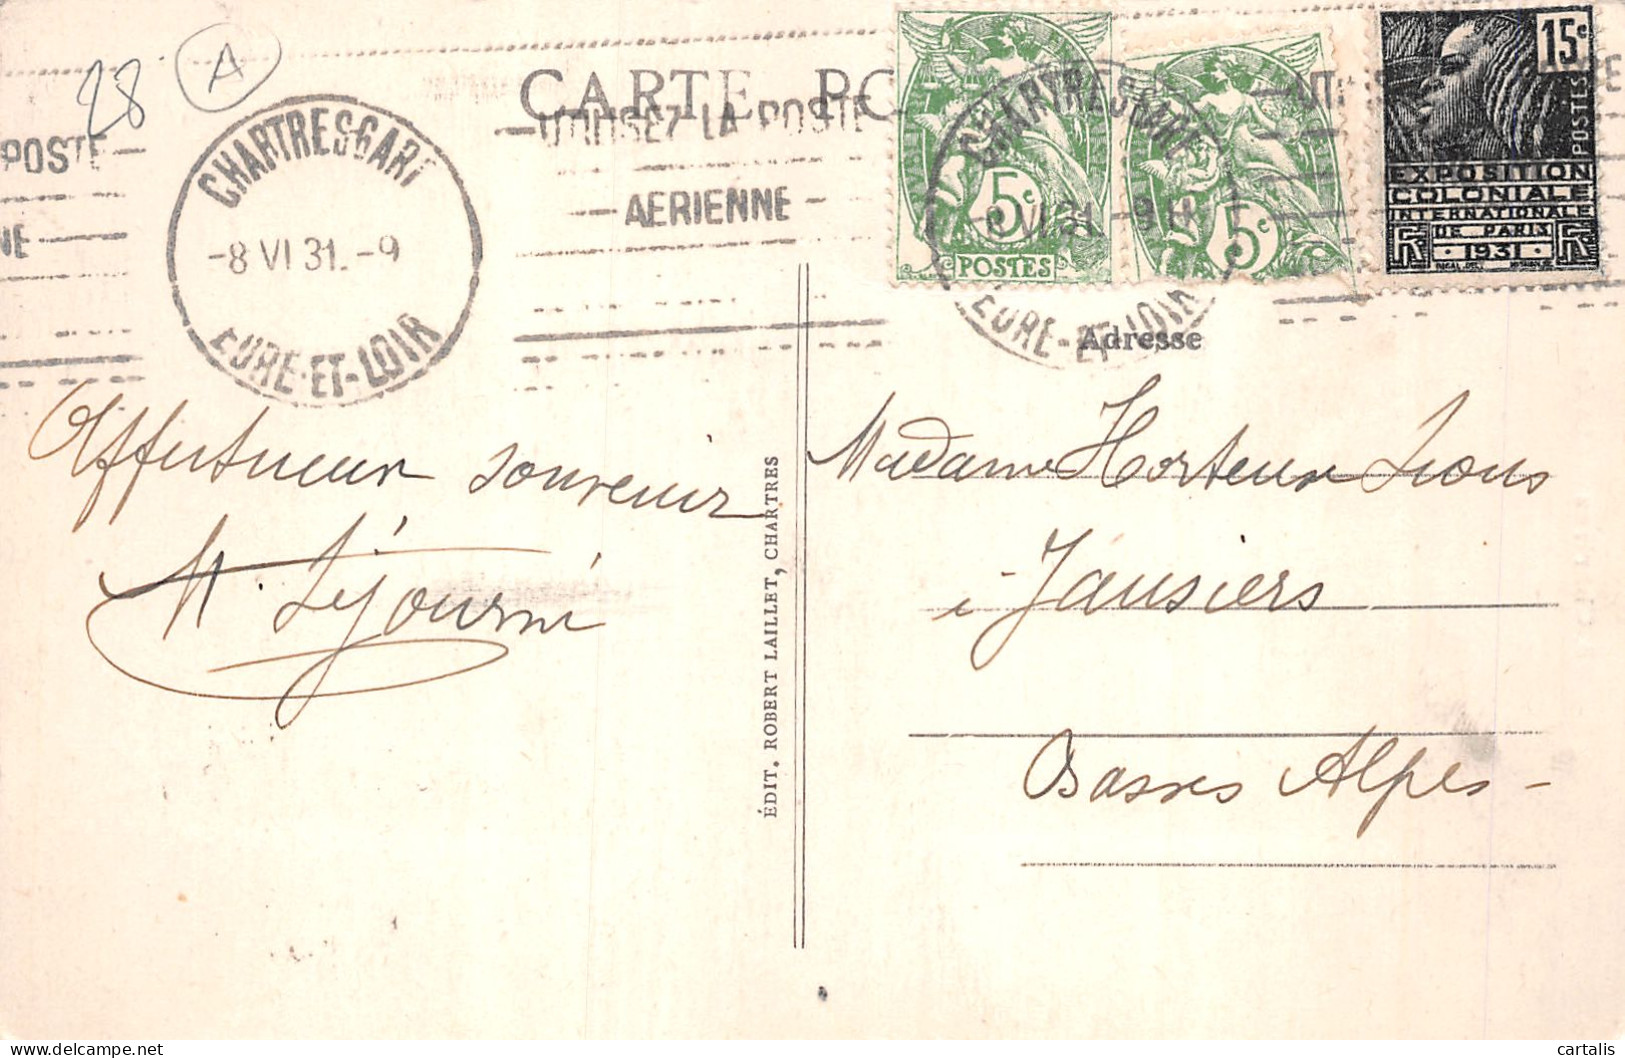 28 A
CARTE PO
POSTE
NE
CHARTRES-GARE
-8 VI 31.-9
EURE-ET-LOIR
-UTILISEZ LA POSTE
-AERIENNE-
5c
POSTES
5c
CHARTRES GARE
-8 VI 31 -9
EURE-ET-LOIR
15c
POSTES
EXPOSITION
COLONIALE
INTERNATIONALE
DE PARIS
·1931·
Adresse
Affectueux souvenir
M. Séjourné
ÉDIT. ROBERT LAILLET, CHARTRES
Madame Horteux Lions
à Jausiers
Basses Alpes -
cartalis